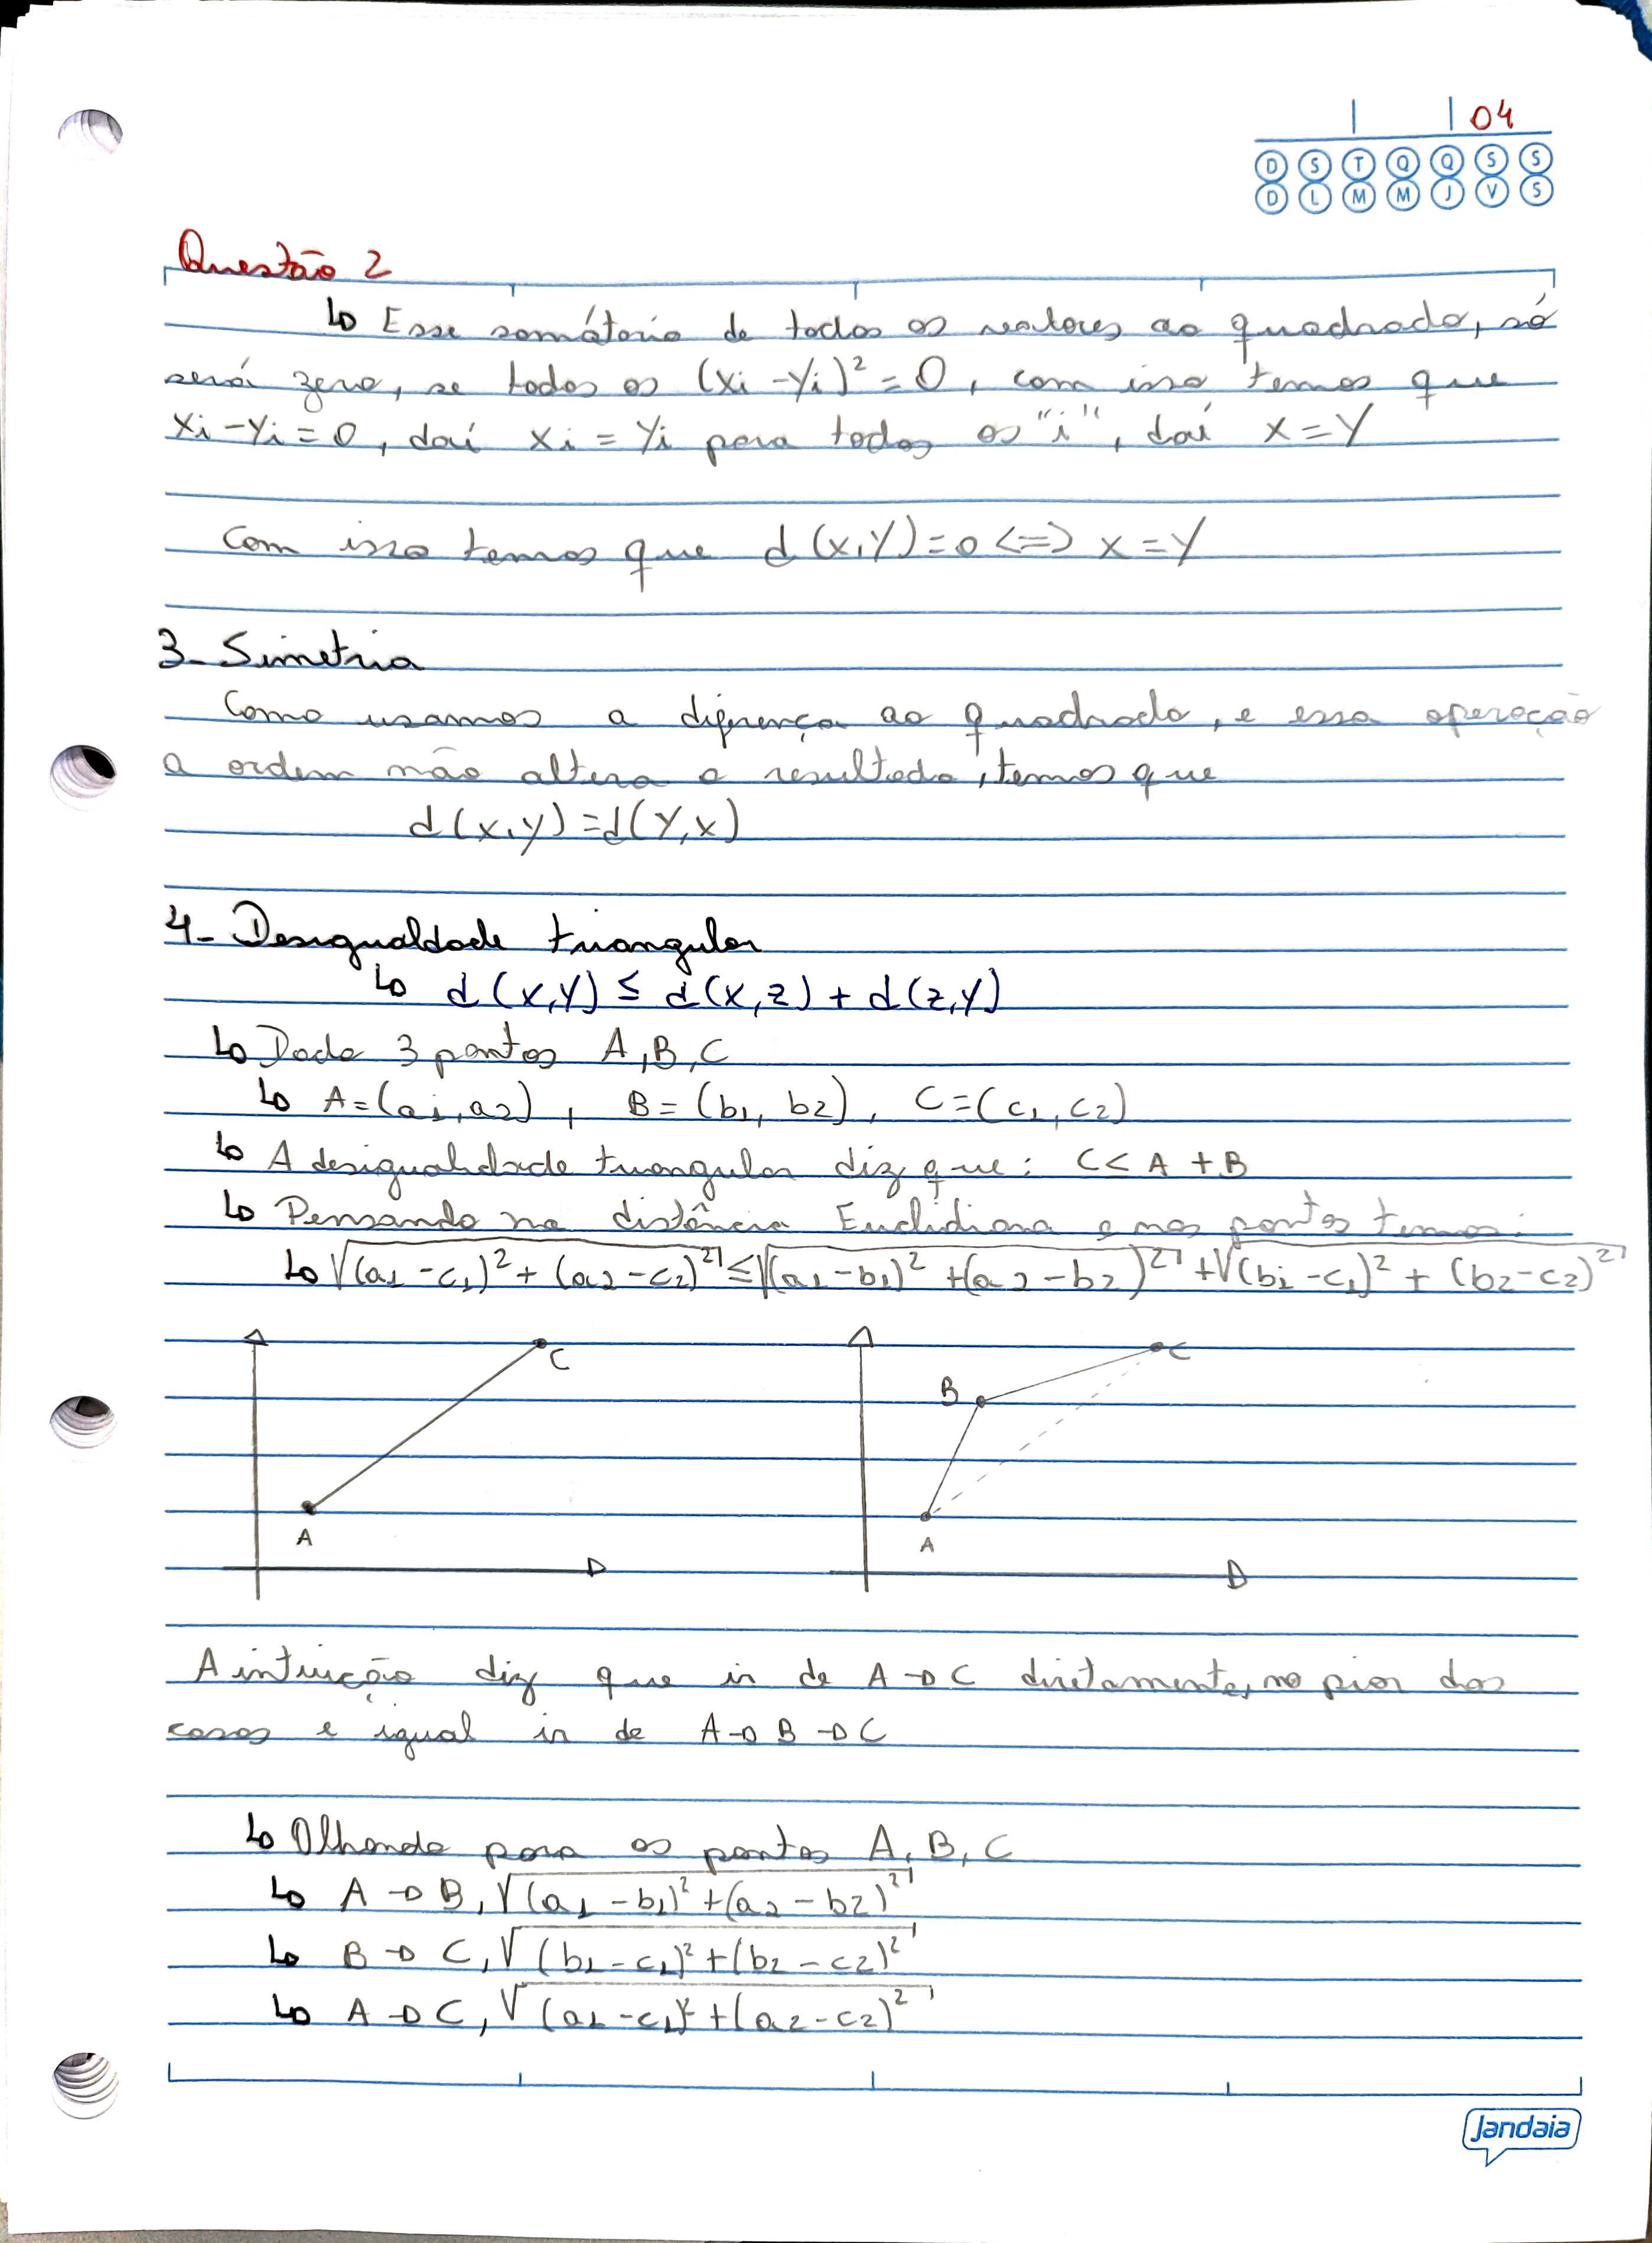 04
D S T Q Q S S
D L M M J V S
Questão 2
↳ Esse somátorio de todos os valores ao quadrado, só
será zero, se todos os (xi - yi)² = 0, com isso temos que
xi - yi = 0, daí xi = yi para todos os "i", daí x = y
Com isso temos que d(x,y) = 0 <=> x = y
3- Simetria
Como usamos a diferença ao quadrado, e essa operação
a ordem não altera o resultado, temos que
d(x,y) = d(y,x)
4- Desigualdade triangular
↳ d(x,y) ≤ d(x,z) + d(z,y)
↳ Dado 3 pontos A, B, C
↳ A = (a1, a2), B = (b1, b2), C = (c1, c2)
↳ A desigualdade triangular diz que: C < A + B
↳ Pensando na distância Euclidiana e nos pontos temos:
↳ √((a1 - c1)² + (a2 - c2)²) ≤ √((a1 - b1)² + (a2 - b2)²) + √((b1 - c1)² + (b2 - c2)²)
C
A
C
B
A
A intuição diz que ir de A → C diretamente, no pior dos
casos e igual ir de A → B → C
↳ Olhando para os pontos A, B, C
↳ A → B, √((a1 - b1)² + (a2 - b2)²)
↳ B → C, √((b1 - c1)² + (b2 - c2)²)
↳ A → C, √((a1 - c1)² + (a2 - c2)²)
Jandaia